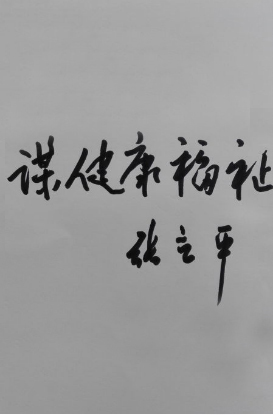 谋健康福祉
张立平